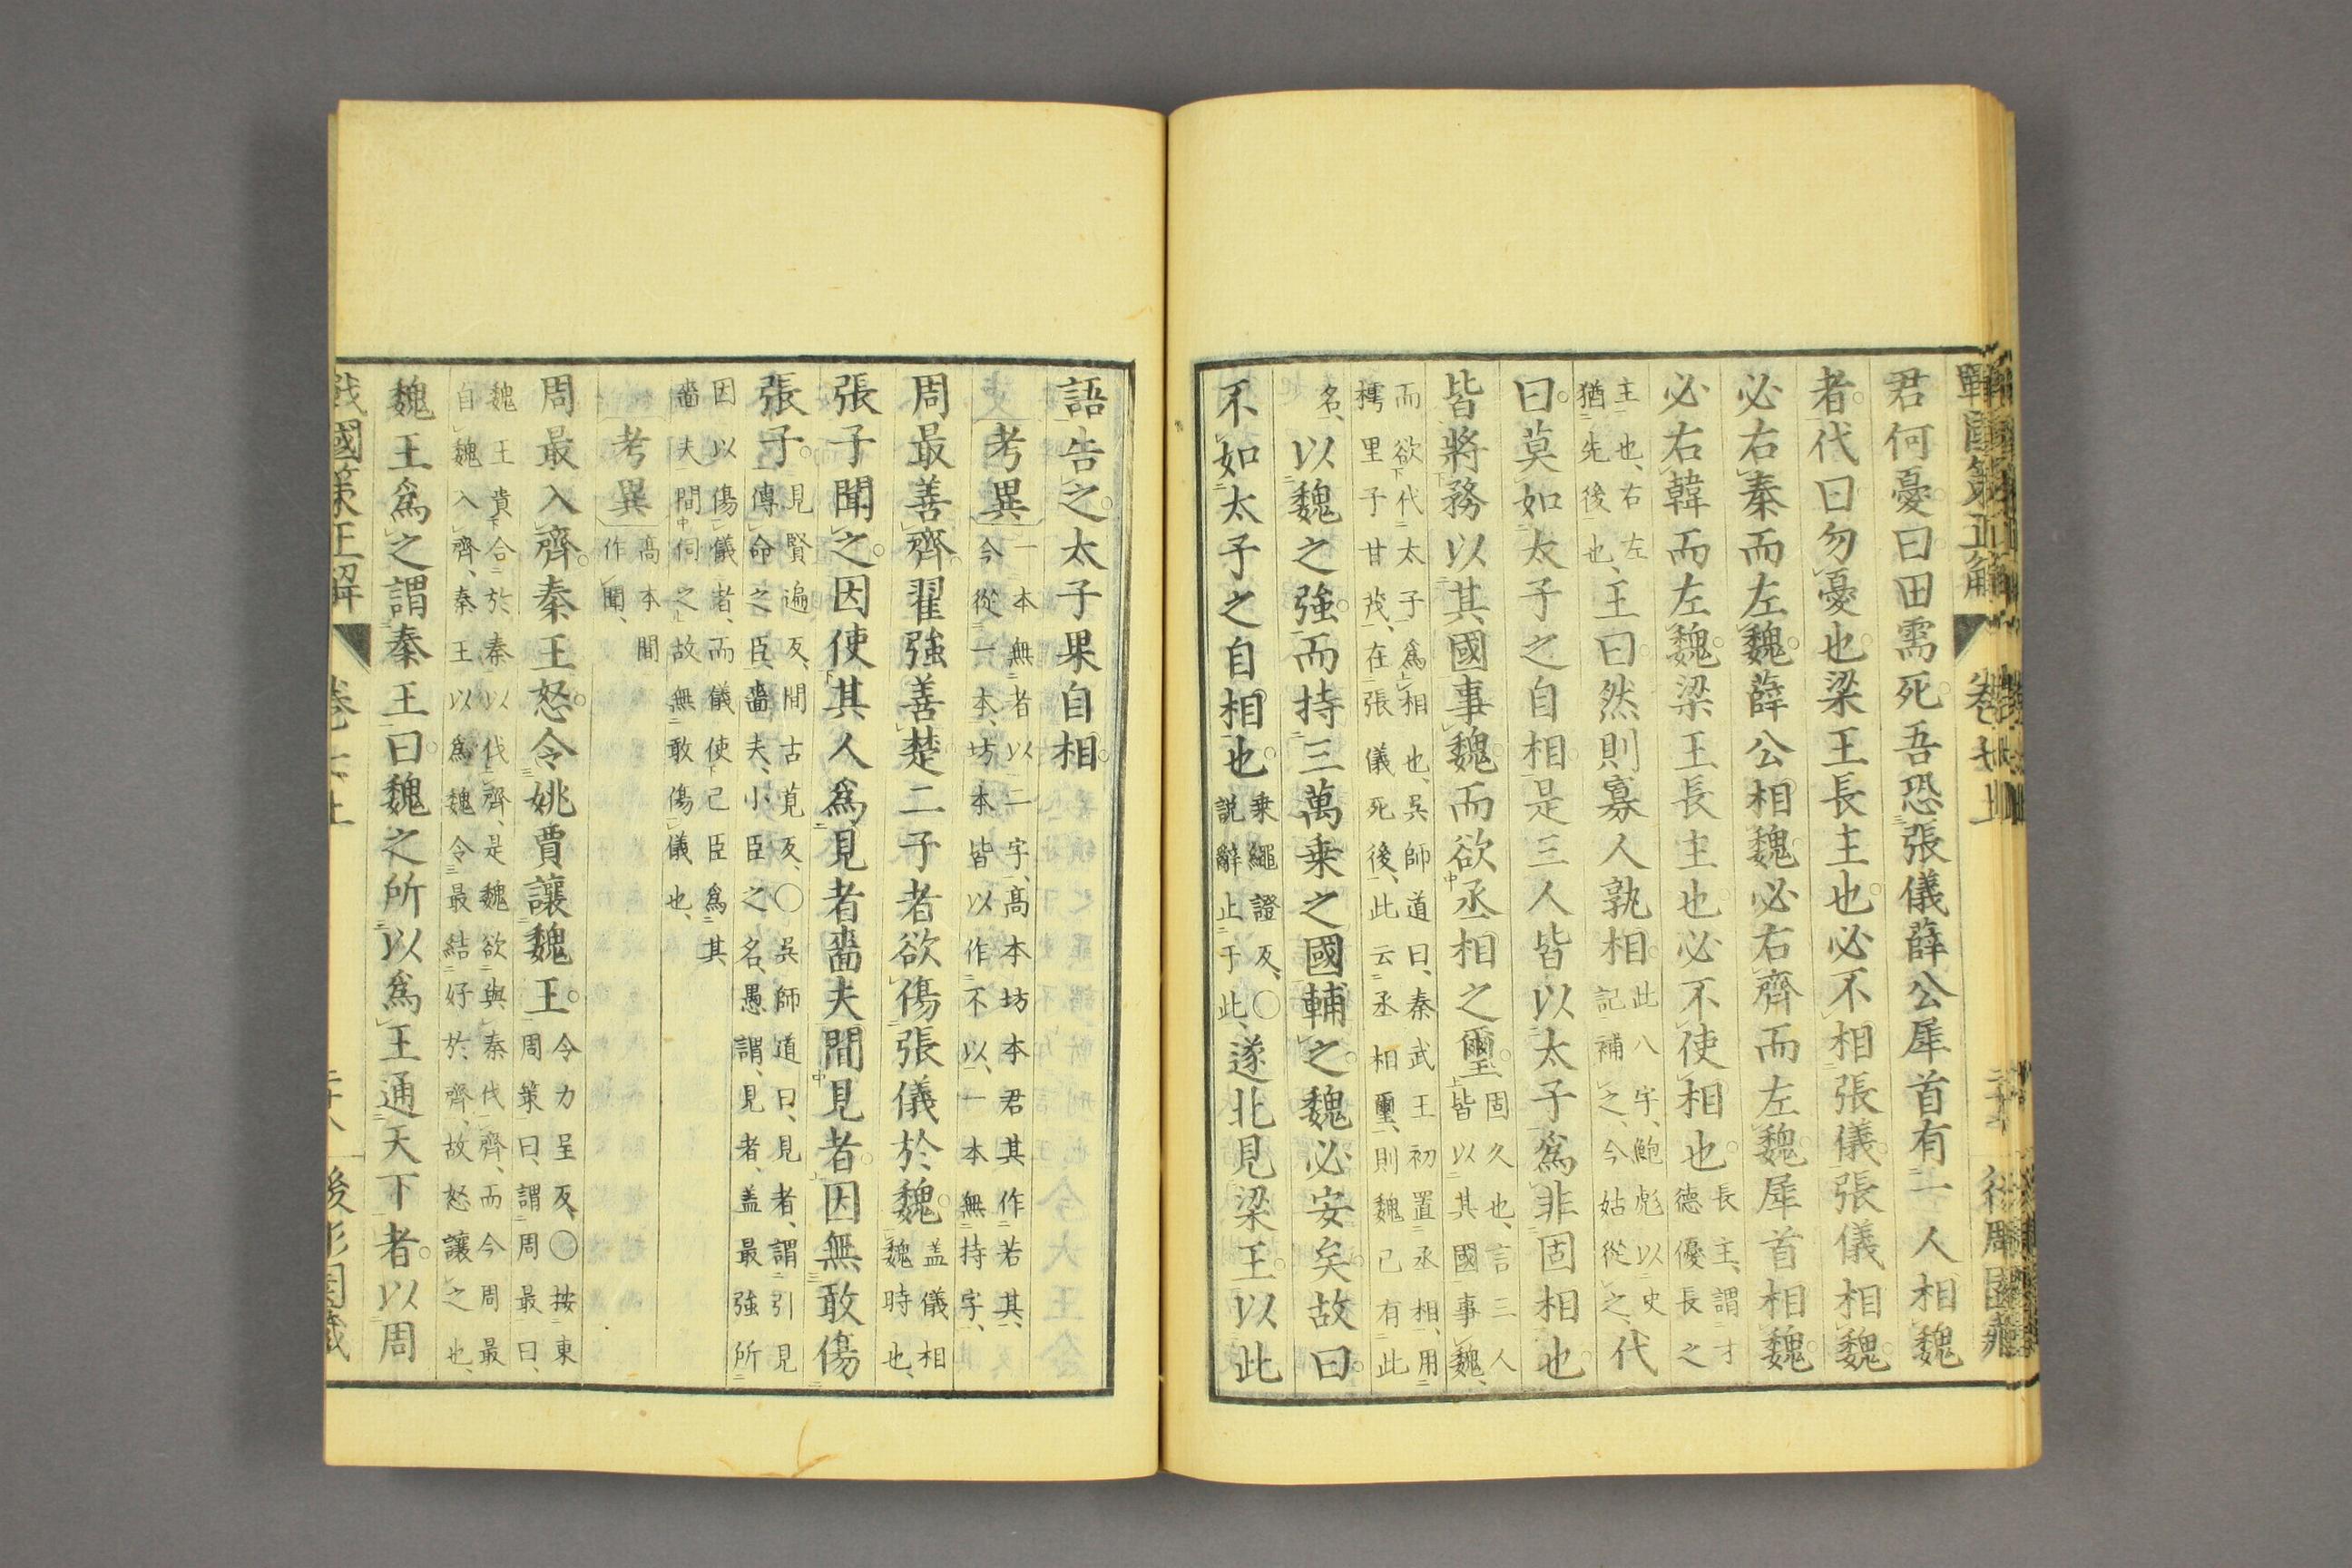 君何憂曰田需死吾恐張儀薛公犀首有一人相魏
者代曰勿憂也梁王長主也必不相張儀張儀相魏
必右秦而左魏薛公相魏必右齊而左魏犀首相魏
必右韓而左魏梁王長主也必不使相也長主謂才德優長之
主也右左猶先後也王曰然則寡人孰相此八字鮑彪以史記補之今姑從之代
曰莫如太子之自相是三人皆以太子爲非固相也
皆將務以其國事魏而欲丞相之璽固久也言三人皆以其國事魏
而欲代太子爲相也吳師道曰秦武王初置丞相用樗里子甘茂在張儀死後此云丞相璽則魏已有此
名以魏之強而持三萬乘之國輔之魏必安矣故曰
不如太子之自相也乘繩證反○說辭止于此遂北見梁王以此
語告之太子果自相
考異一本無者以二字高本坊本君其作若其今從一本坊本皆以作不以一本無持字
周最善齊翟強善楚二子者欲傷張儀於魏盖儀相魏時也
張子聞之因使其人爲見者嗇夫間見者因無敢傷
張子見賢遍反間古莧反○吳師道曰見者謂引見傳命之臣嗇夫小臣之名愚謂見者盖最強所
因以傷儀者而儀使己臣爲其嗇夫間伺之故無敢傷儀也
考異高本間作聞
周最入齊秦王怒令姚賈讓魏王令力呈反○按東周策曰謂周最曰
魏王貴合於秦以伐齊是魏欲與秦伐齊而今周最自魏入齊秦王以爲魏令最結好於齊故怒讓之也
魏王爲之謂秦王曰魏之所以爲王通天下者以周